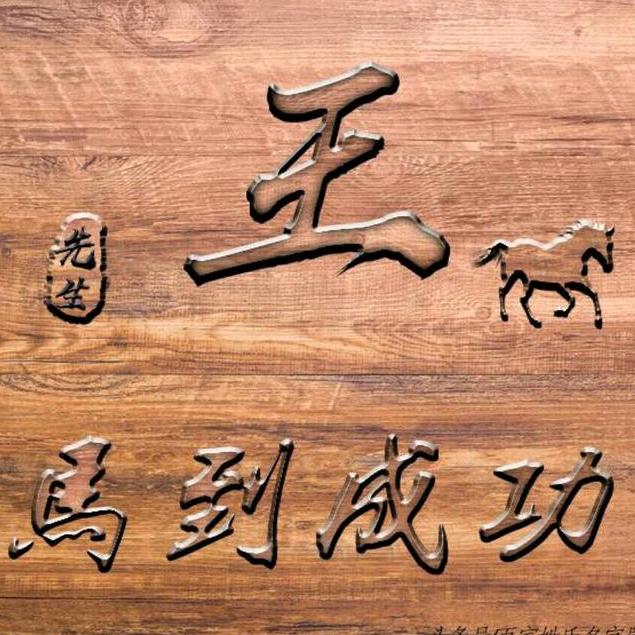 王
先生
馬到成功